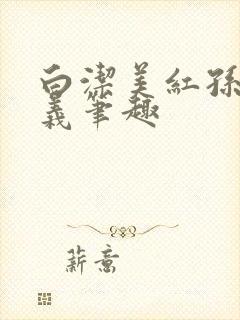 白潔美紅孫
義筆趣
薪意